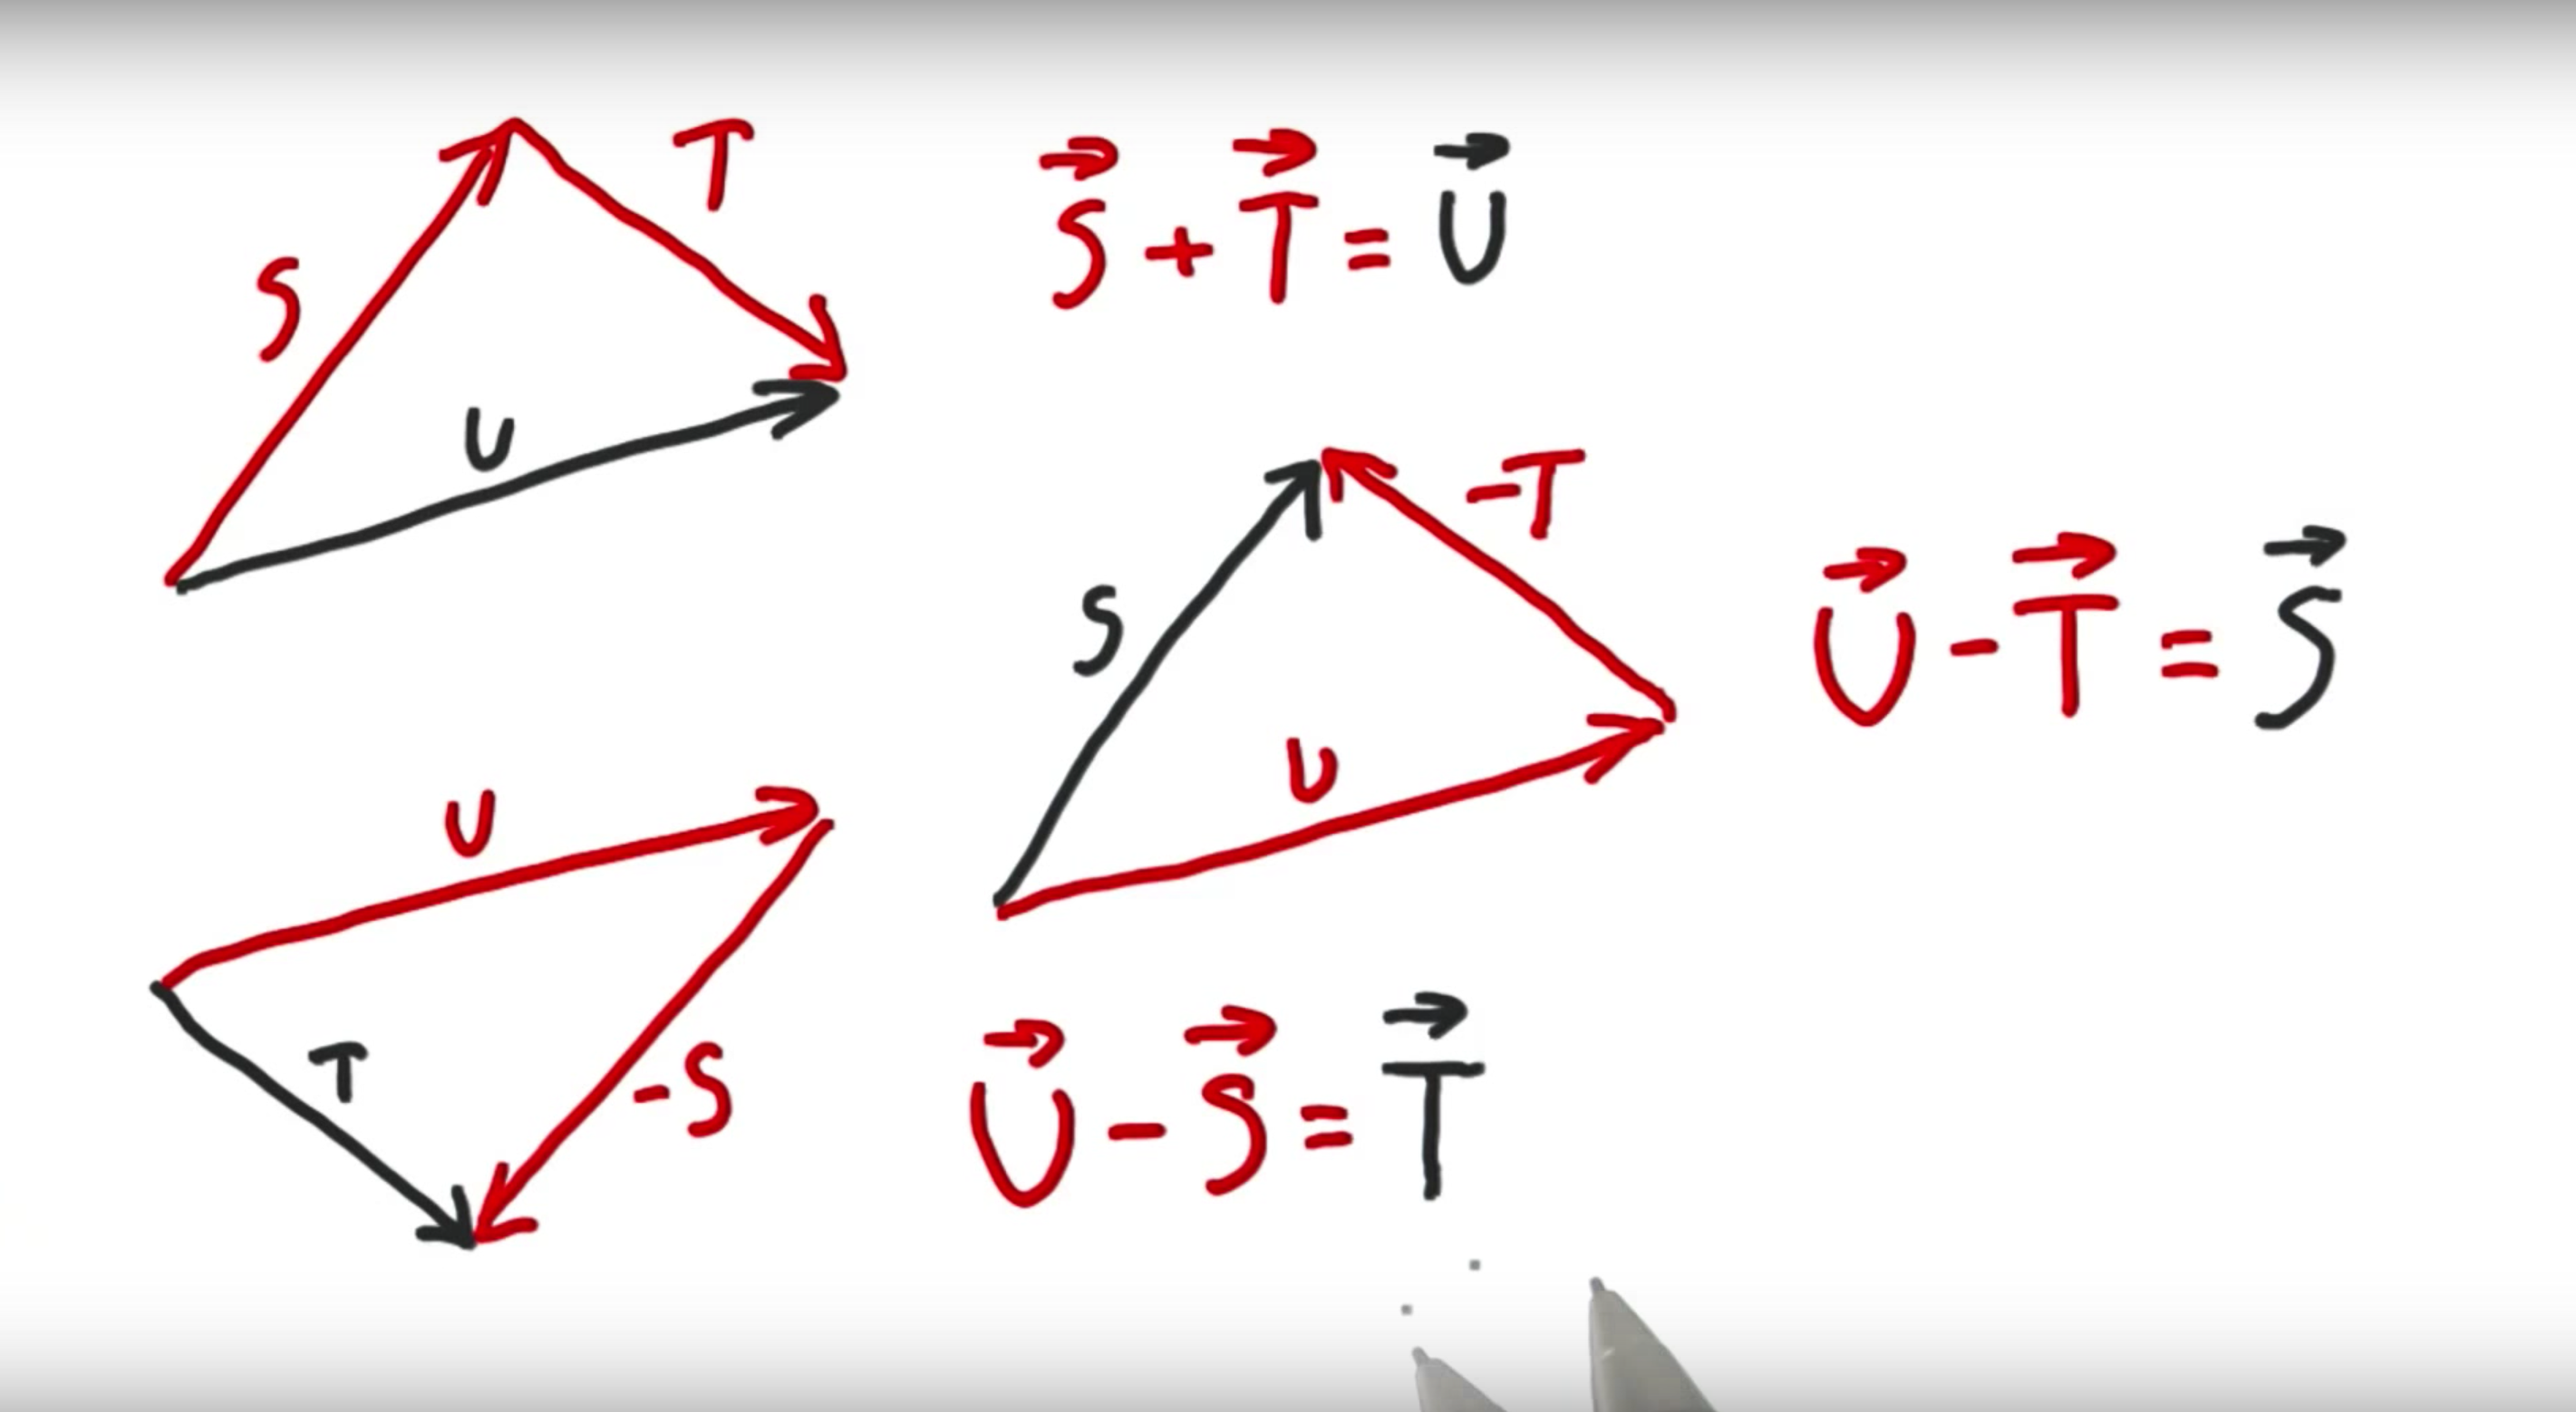 S
T
U
S⃗ + T⃗ = U⃗
S
-T
U
U⃗ - T⃗ = S⃗
U
T
-S
U⃗ - S⃗ = T⃗